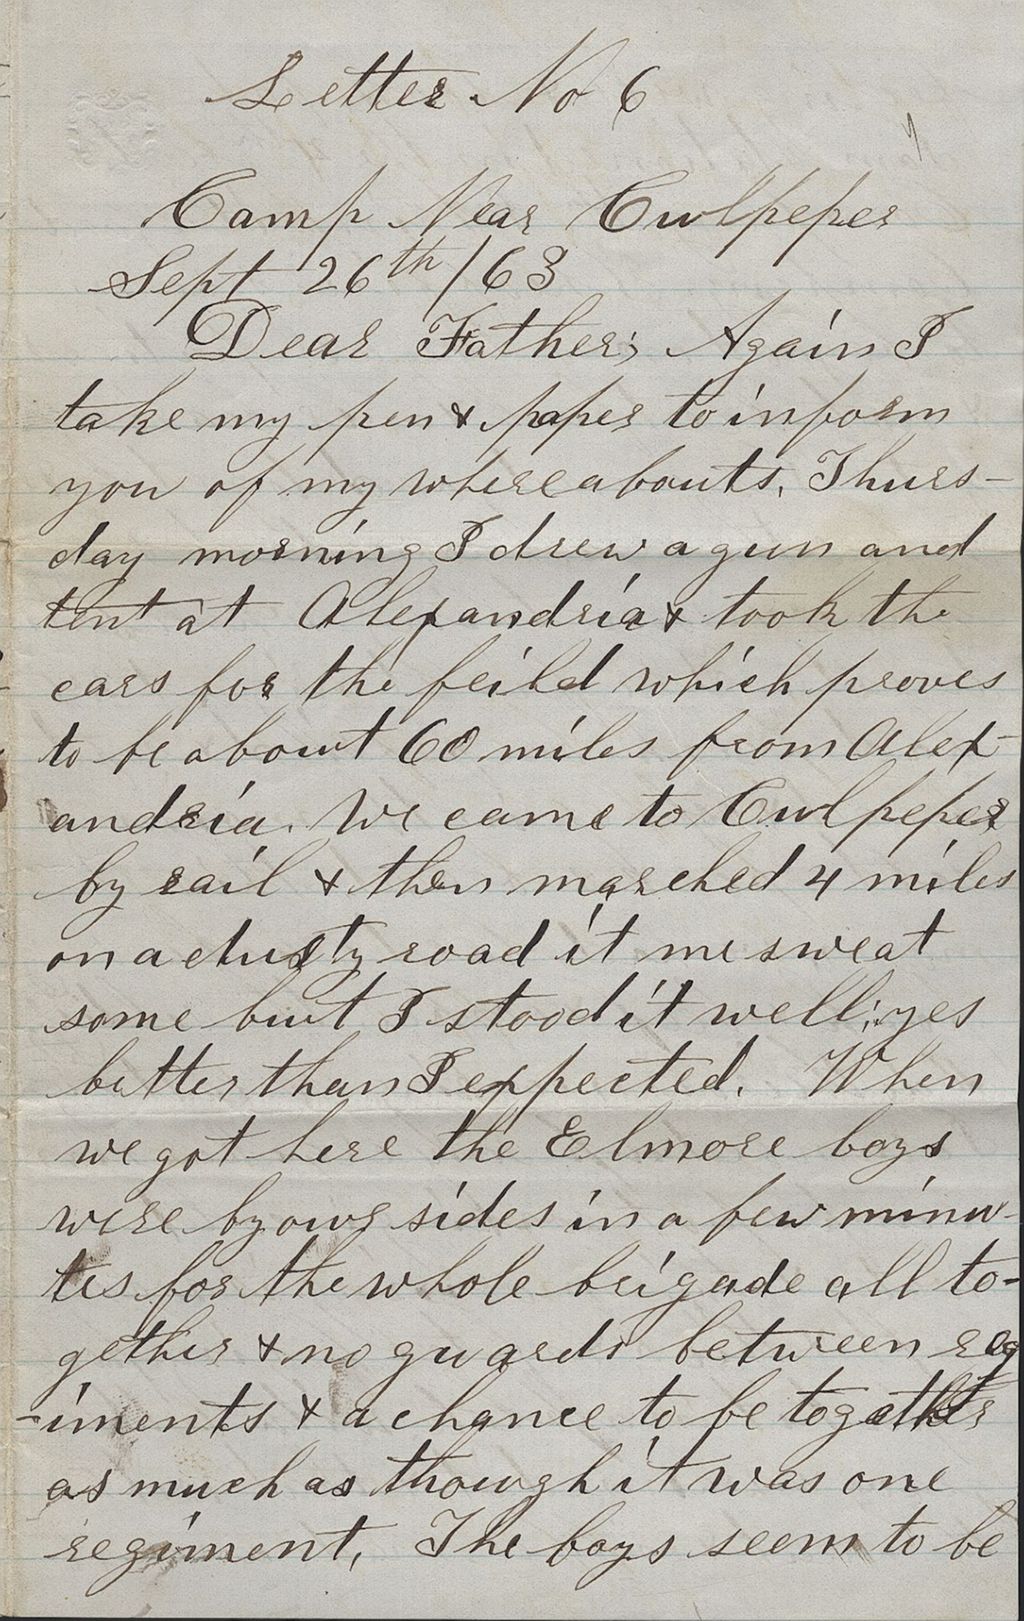 Letter No 6
Camp Near Culpeper
Sept 26th /63
Dear Father; Again I
take my pen & paper to inform
you of my whereabouts. Thurs-
day morning I drew a gun and
tent at Alexandria & took the
cars for the feild which proves
to be about 60 miles from Alex-
andria. We came to Culpeper
by rail & then marched 4 miles
on a dusty road it me sweat
some but I stood it well; yes
better than I expected. When
we got here the Elmore boys
were by our sides in a few minu-
tes for the whole brigade all to-
gether & no guards between reg
-iments & a chance to be togather
as much as though it was one
regiment. The boys seem to be